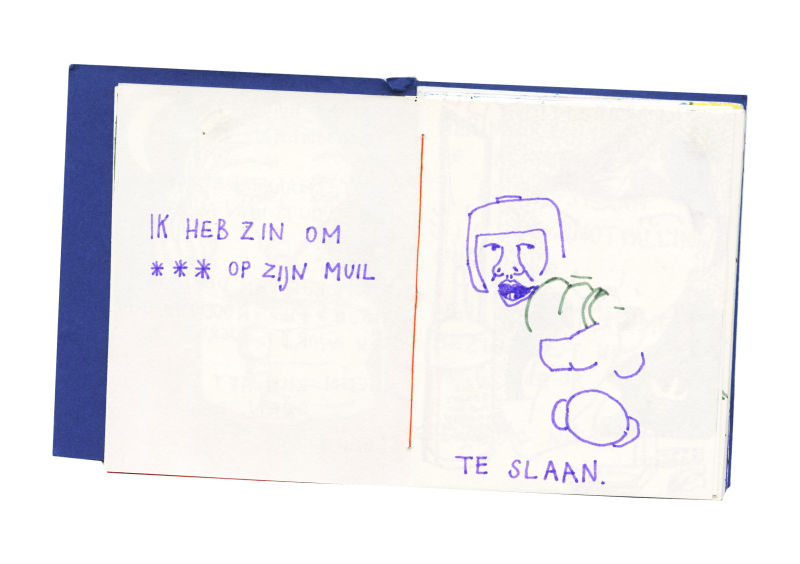 IK HEB ZIN OM
*** OP ZIJN MUIL
TE SLAAN.